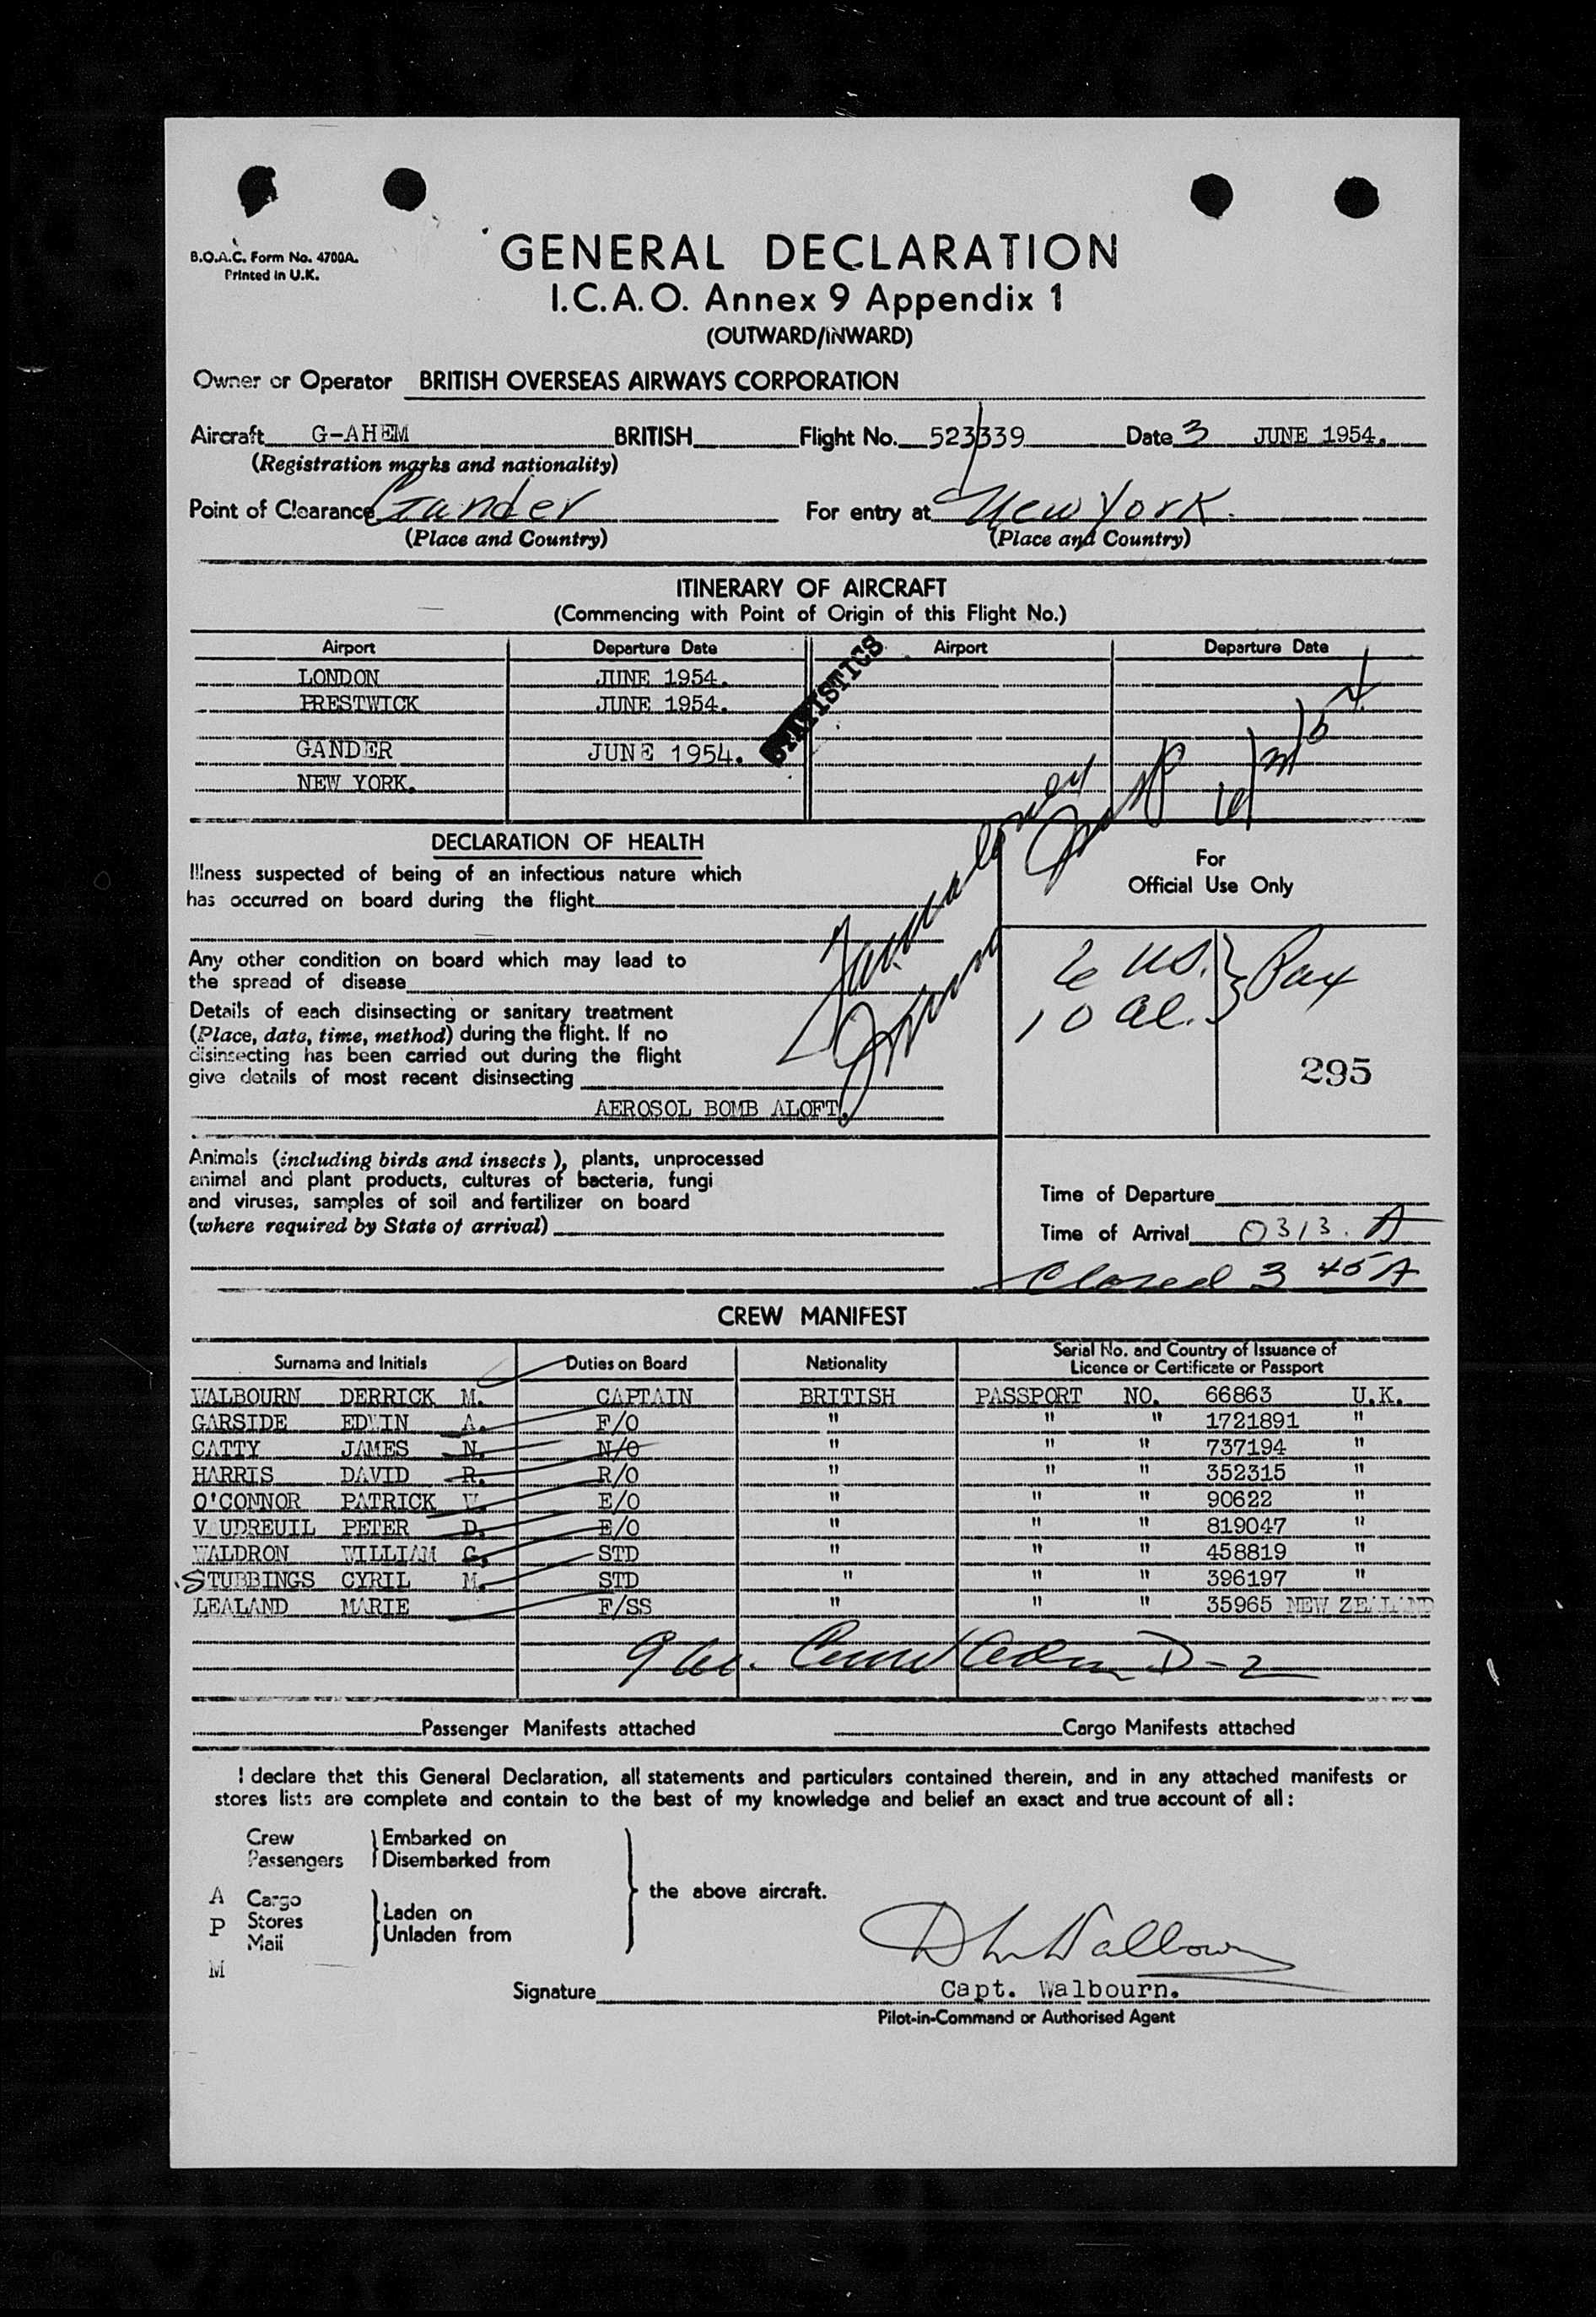 B.O.A.C. Form No. 4700A.
Printed in U.K.
GENERAL DECLARATION
I.C.A.O. Annex 9 Appendix 1
(OUTWARD/INWARD)
Owner or Operator BRITISH OVERSEAS AIRWAYS CORPORATION
Aircraft G-AHEM BRITISH Flight No. 523/339 Date 3 JUNE 1954.
(Registration marks and nationality)
Point of Clearance Gander For entry at New York.
(Place and Country) (Place and Country)
ITINERARY OF AIRCRAFT
(Commencing with Point of Origin of this Flight No.)
Airport Departure Date Airport Departure Date
LONDON JUNE 1954.
PRESTWICK JUNE 1954.
STATISTICS
GANDER JUNE 1954.
NEW YORK.
6/3/54
DECLARATION OF HEALTH
For
Official Use Only
Illness suspected of being of an infectious nature which
has occurred on board during the flight
Any other condition on board which may lead to
the spread of disease
6 US. } Pax
10 al.
Details of each disinsecting or sanitary treatment
(Place, date, time, method) during the flight. If no
disinsecting has been carried out during the flight
give details of most recent disinsecting
295
AEROSOL BOMB ALOFT.
Animals (including birds and insects), plants, unprocessed
animal and plant products, cultures of bacteria, fungi
and viruses, samples of soil and fertilizer on board
(where required by State of arrival)
Time of Departure
Time of Arrival 0313. A
Closed 3 45 A
CREW MANIFEST
Surname and Initials Duties on Board Nationality Serial No. and Country of Issuance of
Licence or Certificate or Passport
WALBOURN DERRICK M. CAPTAIN BRITISH PASSPORT NO. 66863 U.K.
GARSIDE EDWIN A. F/O " " " 1721891 "
CATTY JAMES N. N/O " " " 737194 "
HARRIS DAVID R. R/O " " " 352315 "
O'CONNOR PATRICK V. E/O " " " 90622 "
V UDREUIL PETER D. E/O " " " 819047 "
WALDRON WILLIAM G. STD " " " 458819 "
STUBBINGS CYRIL M. STD " " " 396197 "
LEALAND MARIE F/SS " " " 35965 NEW ZEALAND
9 al. Crew Adm D-2
Passenger Manifests attached Cargo Manifests attached
I declare that this General Declaration, all statements and particulars contained therein, and in any attached manifests or
stores lists are complete and contain to the best of my knowledge and belief an exact and true account of all:
Crew
Passengers
Embarked on
Disembarked from
A Cargo
P Stores
Mail
M
Laden on
Unladen from
the above aircraft.
D M Walbourn
Signature Capt. Walbourn.
Pilot-in-Command or Authorised Agent